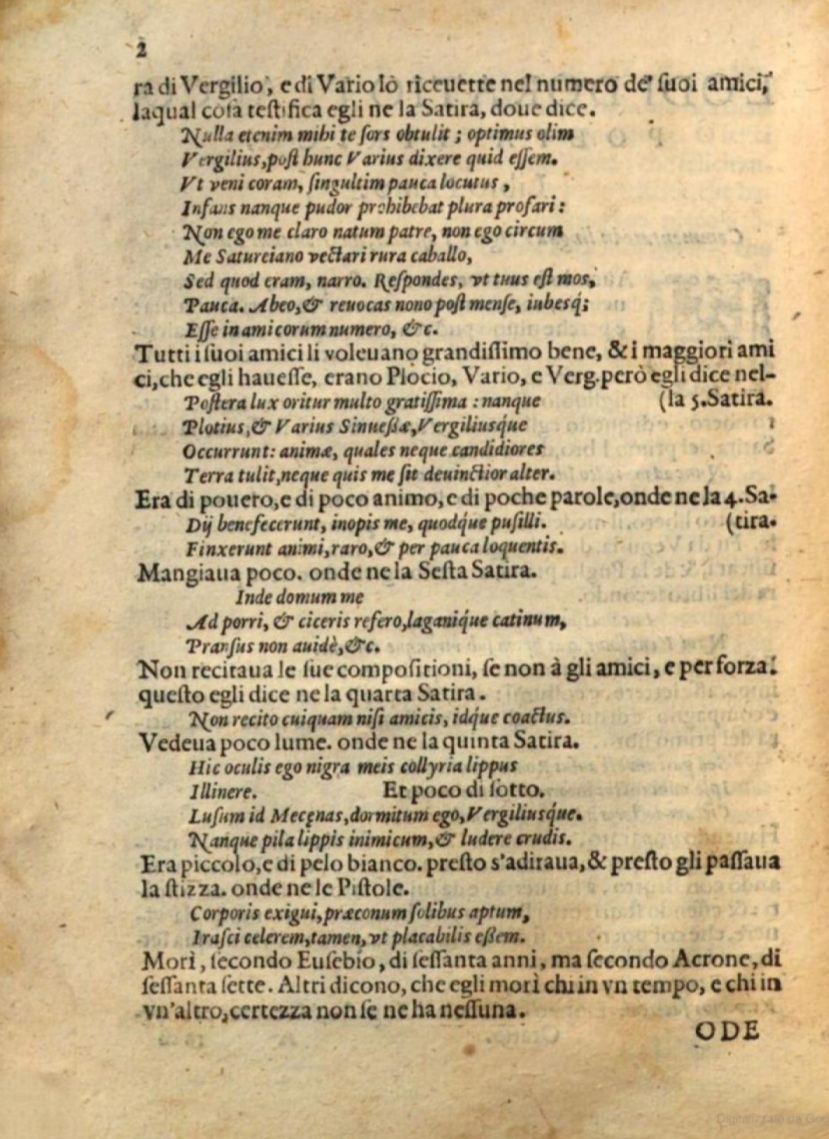 2
ra di Vergilio, e di Vario lò riceuette nel numero de' ſuoi amici,
laqual coſa teſtifica egli ne la Satira, doue dice.
Nulla etenim mihi te ſors obtulit; optimus olim
Vergilius, poſt hunc Varius dixere quid eſſem.
Vt veni coram, ſingultim pauca locutus,
Infans nanque pudor prohibebat plura profari:
Non ego me claro natum patre, non ego circum
Me Satureiano vectari rura caballo,
Sed quod eram, narro. Reſpondes, vt tuus eſt mos,
Pauca. Abeo, & reuocas nono poſt menſe, iubesq́;
Eſſe in amicorum numero, &c.
Tutti i ſuoi amici li voleuano grandiſſimo bene, & i maggiori ami
ci, che egli haueſſe, erano Plocio, Vario, e Verg. però egli dice nel-
Poſtera lux oritur multo gratiſſima : nanque (la 5. Satira.
Plotius, & Varius Sinueßæ, Vergiliusque
Occurrunt: animæ, quales neque candidiores
Terra tulit, neque quis me ſit deuinctior alter.
Era di pouero, e di poco animo, e di poche parole, onde ne la 4. Sa-
Dij benefecerunt, inopis me, quodque puſilli. (tira.
Finxerunt animi, raro, & per pauca loquentis.
Mangiaua poco. onde ne la Seſta Satira.
Inde domum me
Ad porri, & ciceris refero, laganique catinum,
Pranſus non auidè, &c.
Non recitaua le ſue compoſitioni, ſe non à gli amici, e per forza.
queſto egli dice ne la quarta Satira.
Non recito cuiquam niſi amicis, idque coactus.
Vedeua poco lume. onde ne la quinta Satira.
Hic oculis ego nigra meis collyria lippus
Illinere. Et poco di ſotto.
Luſum id Mecęnas, dormitum ego, Vergiliusque.
Nanque pila lippis inimicum, & ludere crudis.
Era piccolo, e di pelo bianco. preſto s'adiraua, & preſto gli paſſaua
la ſtizza. onde ne le Piſtole.
Corporis exigui, præconum ſolibus aptum,
Iraſci celerem, tamen, vt placabilis eßem.
Morì, ſecondo Euſebio, di ſeſſanta anni, ma ſecondo Acrone, di
ſeſſanta ſette. Altri dicono, che egli morì chi in vn tempo, e chi in
vn'altro, certezza non ſe ne ha neſſuna.
ODE